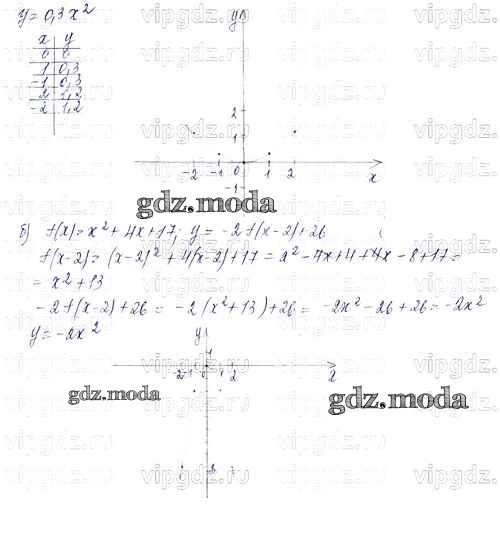 y = 0,3x²
x y
0 0
1 0,3
-1 0,3
2 1,2
-2 1,2
y
2
1
-2 -1 0 1 2
x
-1
gdz.moda
б) f(x) = x² + 4x + 17; y = -2f(x-2) + 26
f(x-2) = (x-2)² + 4(x-2) + 17 = x² - 4x + 4 + 4x - 8 + 17 =
= x² + 13
-2f(x-2) + 26 = -2(x² + 13) + 26 = -2x² - 26 + 26 = -2x²
y = -2x²
y
1
-2 -1 0 1 2
x
gdz.moda
gdz.moda
vipgdz.ru